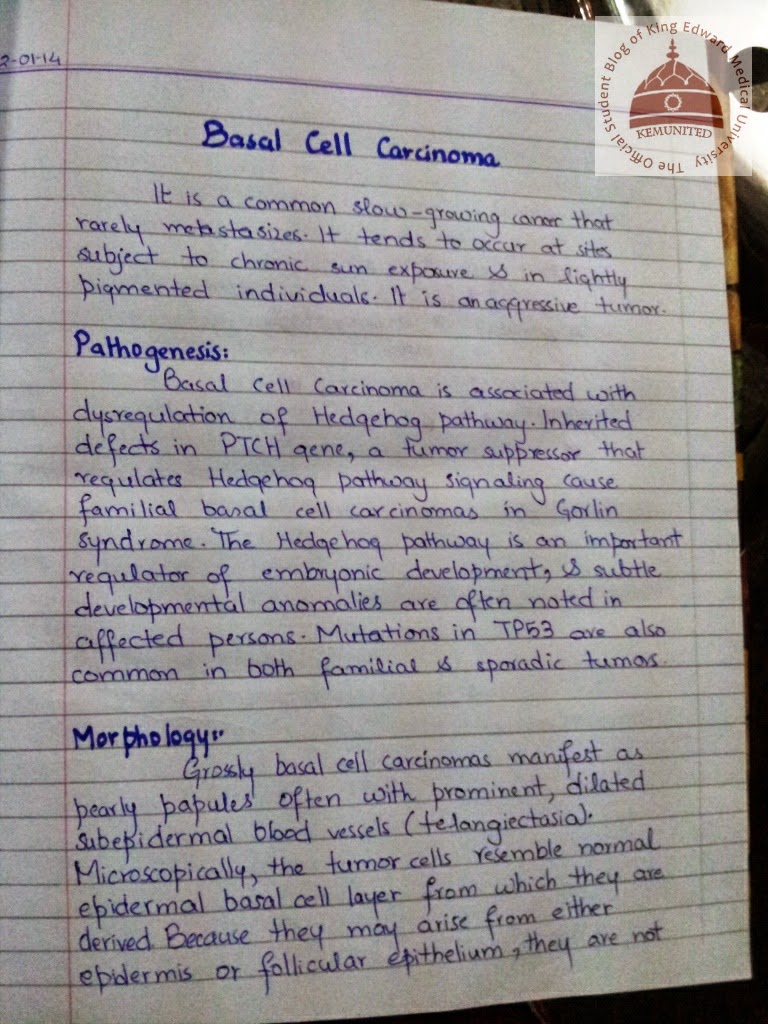 2-01-14
The Official Student Blog of King Edward Medical University
KEMUNITED
Basal Cell Carcinoma
It is a common slow-growing cancer that
rarely metastasizes. It tends to occur at sites
subject to chronic sun exposure & in lightly
pigmented individuals. It is an aggressive tumor.
Pathogenesis:
Basal Cell Carcinoma is associated with
dysregulation of Hedgehog pathway. Inherited
defects in PTCH gene, a tumor suppressor that
regulates Hedgehog pathway signaling cause
familial basal cell carcinomas in Gorlin
syndrome. The Hedgehog pathway is an important
regulator of embryonic development, & subtle
developmental anomalies are often noted in
affected persons. Mutations in TP53 are also
common in both familial & sporadic tumors.
Morphology:
Grossly basal cell carcinomas manifest as
pearly papules often with prominent, dilated
subepidermal blood vessels (telangiectasia).
Microscopically, the tumor cells resemble normal
epidermal basal cell layer from which they are
derived. Because they may arise from either
epidermis or follicular epithelium, they are not